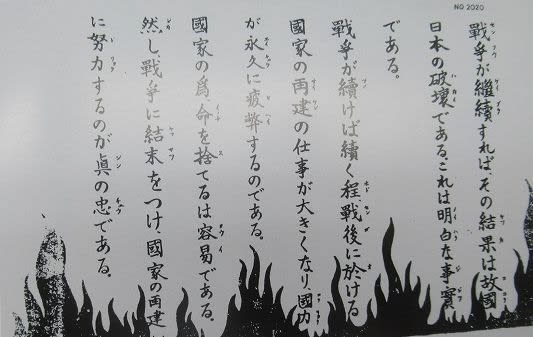 NO 2020
戰爭が繼續すれば、その結果は故國
日本の破壞である。これは明白な事實
である。
戰爭が續けば續く程、戰後に於ける
國家の再建の仕事が大きくなり、國力
が永久に疲弊するのである。
國家の爲命を捨てるは容易である。
然し戰爭に結末をつけ、國家の再建
に努力するのが眞の忠である。